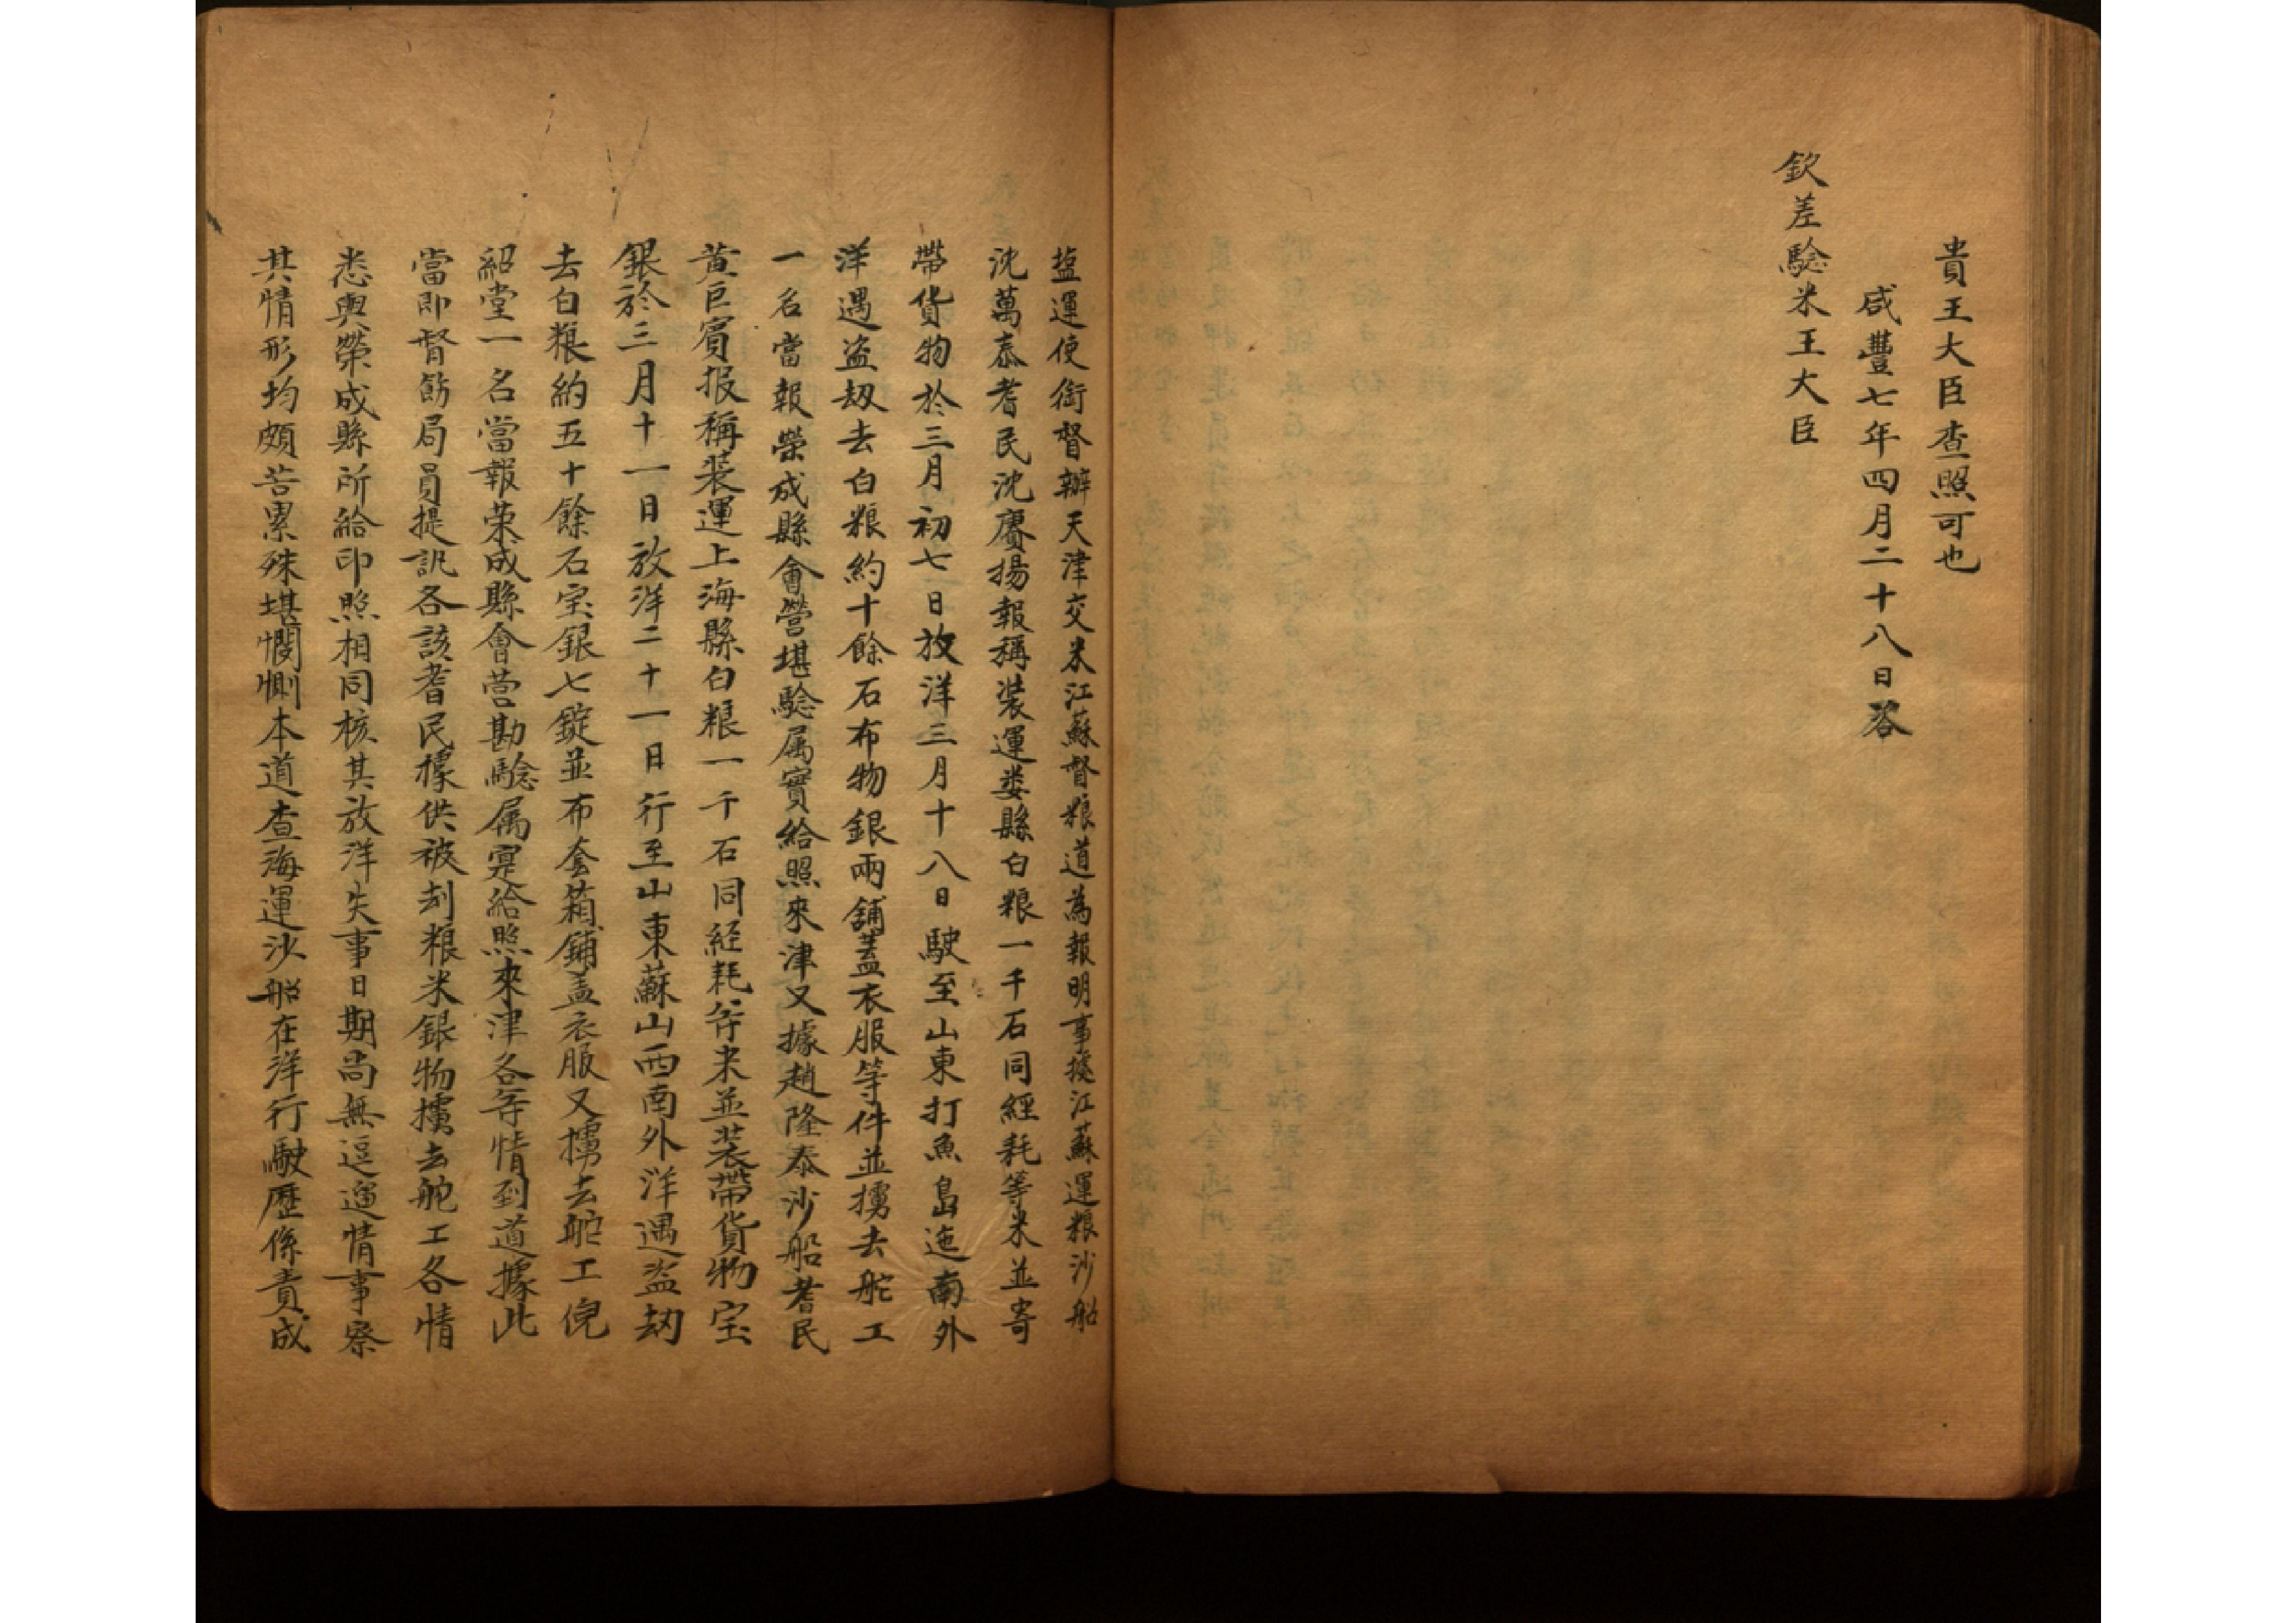 貴王大臣查照可也
咸豐七年四月二十八日咨
欽差驗米王大臣
塩運使銜督辦天津交米江蘇督粮道為報明事據江蘇運粮沙船
沈萬泰耆民沈賡揚報稱裝運婁縣白粮一千石同經耗等米並寄
帶貨物於三月初七日放洋三月十八日駛至山東打魚島迤南外
洋遇盗刼去白粮約十餘石布物銀兩舖蓋衣服等件並擄去舵工
一名當報榮成縣會營堪驗属實給照來津又據趙隆泰沙船耆民
黄巨賓报稱裝運上海縣白粮一千石同経耗等米並裝帶貨物宝
銀於三月十一日放洋二十一日行至山東蘇山西南外洋遇盗刼
去白粮約五十餘石宝銀七錠並布套箱鋪盖衣服又擄去舵工倪
紹堂一名當報荣成縣會营勘驗属寔給照來津各等情到道據此
當即督飭局員提訊各該耆民據供被刦粮米銀物擄去舵工各情
悉與榮成縣所給印照相同核其放洋失事日期尚無逗遛情事察
其情形均頗苦累殊堪憫惻本道查海運沙船在洋行駛歷係責成